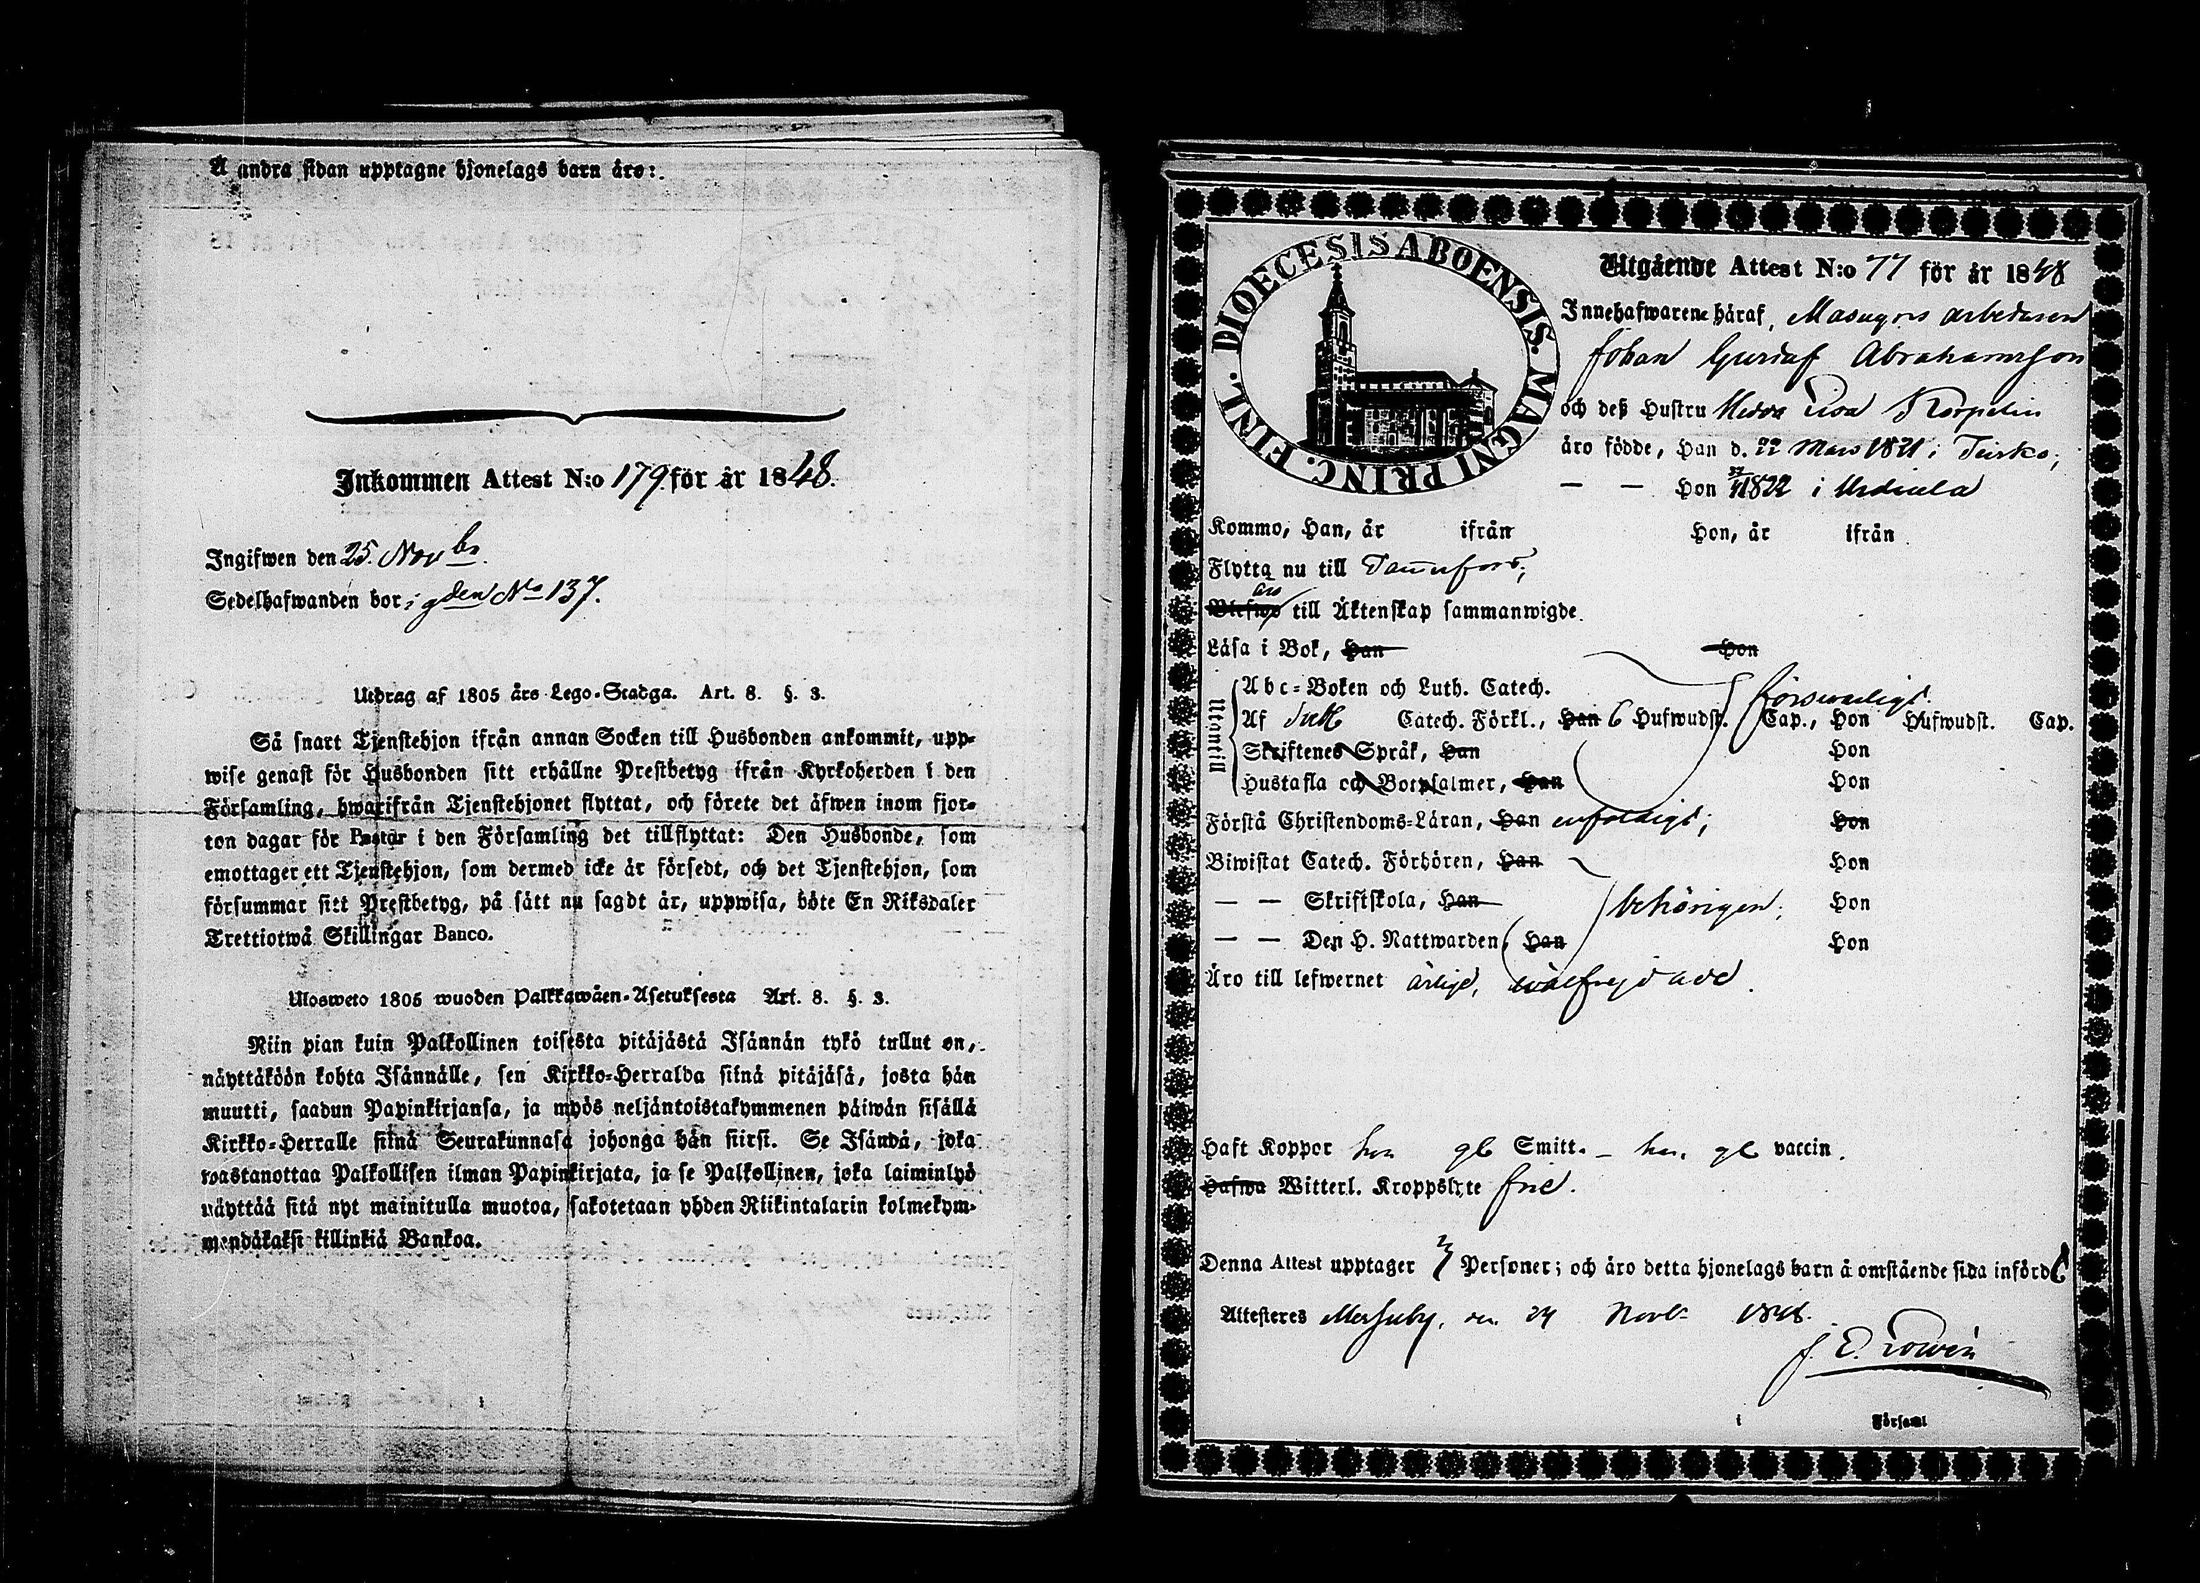 Å andra sidan upptagne hjonelags barn äro:
Inkommen Attest N:o 179 för år 1848.
Ingifwen den 25. Novbr.
Sedelhafwanden bor i gden No 137.
Utdrag af 1805 års Lego-Stadga. Art. 8. §. 3.
Så snart Tjenstehjon ifrån annan Socken till Husbonden ankommit, upp-
wise genast för Husbonden sitt erhållne Prestbetyg ifrån Kyrkoherden i den
Församling, hwarifrån Tjenstehjonet flyttat, och förete det äfwen inom fjor-
ton dagar för Pastor i den Församling det tillflyttat: Den Husbonde, som
emottager ett Tjenstehjon, som dermed icke är försedt, och det Tjenstehjon, som
försummar sitt Prestbetyg, på sätt nu sagdt är, uppwisa, böte En Riksdaler
Trettiotwå Skillingar Banco.
Ulosweto 1805 wuoden Palkkawäen-Asetuksesta Art. 8. §. 3.
Niin pian kuin Palkollinen toisesta pitäjästä Isännän tykö tullut on,
näyttäköön kohta Isännälle, sen Kirkko-Herralda siinä pitäjäsä, josta hän
muutti, saadun Papinkirjansa, ja myös neljäntoistakymmenen päiwän sisällä
Kirkko-Herralle siinä Seurakunnasa johonga hän siirsi. Se Isändä, joka
wastanottaa Palkollisen ilman Papinkirjata, ja se Palkollinen, joka laiminlyö
näyttää sitä nyt mainitulla muotoa, sakotetaan yhden Riikintalarin kolmekym-
mendäkaksi killinkiä Bankoa.
DIOECESIS ABOENSIS. MAGNI PRINC. FINL.
Utgående Attest N:o 77 för år 1848
Innehafwarene häraf, Masugns arbetaren
Johan Gustaf Abrahamsson
och deß Hustru Hedda Lisa Korpelin
äro födde, Han d. 22 Mars 1821 i Tusko;
— — Hon 1822 i Urdiala
Kommo, Han, år ifrån Hon, år ifrån
Flytta nu till Tammefors;
äro
Blefwo till Äktenskap sammanwigde.
Läsa i Bok, Han Hon
Utantill
Abc-Boken och Luth. Catech. försvarligt.
Af Catech. Förkl., Han 6 Hufwudst. Cap., Hon Hufwudst. Cap.
Skriftenes Språk, Han Hon
Hustafla och Botpsalmer, Han Hon
Förstå Christendoms-Läran, Han enfaldigt; Hon
Biwistat Catech. Förhören, Han Hon
— — Skriftskola, Han behörigen; Hon
— — Den H. Nattwarden, Han Hon
Äro till lefwernet ärlige, wälfrejdade.
Haft Koppor han gb Smitt. – hon gb vaccin.
Hafwa Witterl. Kroppslyte frie.
Denna Attest upptager 2 Personer; och äro detta hjonelags barn å omstående sida införde
Attesteres Messuby, den 24 Novbr 1848.
J. E. Lowén
i Församl